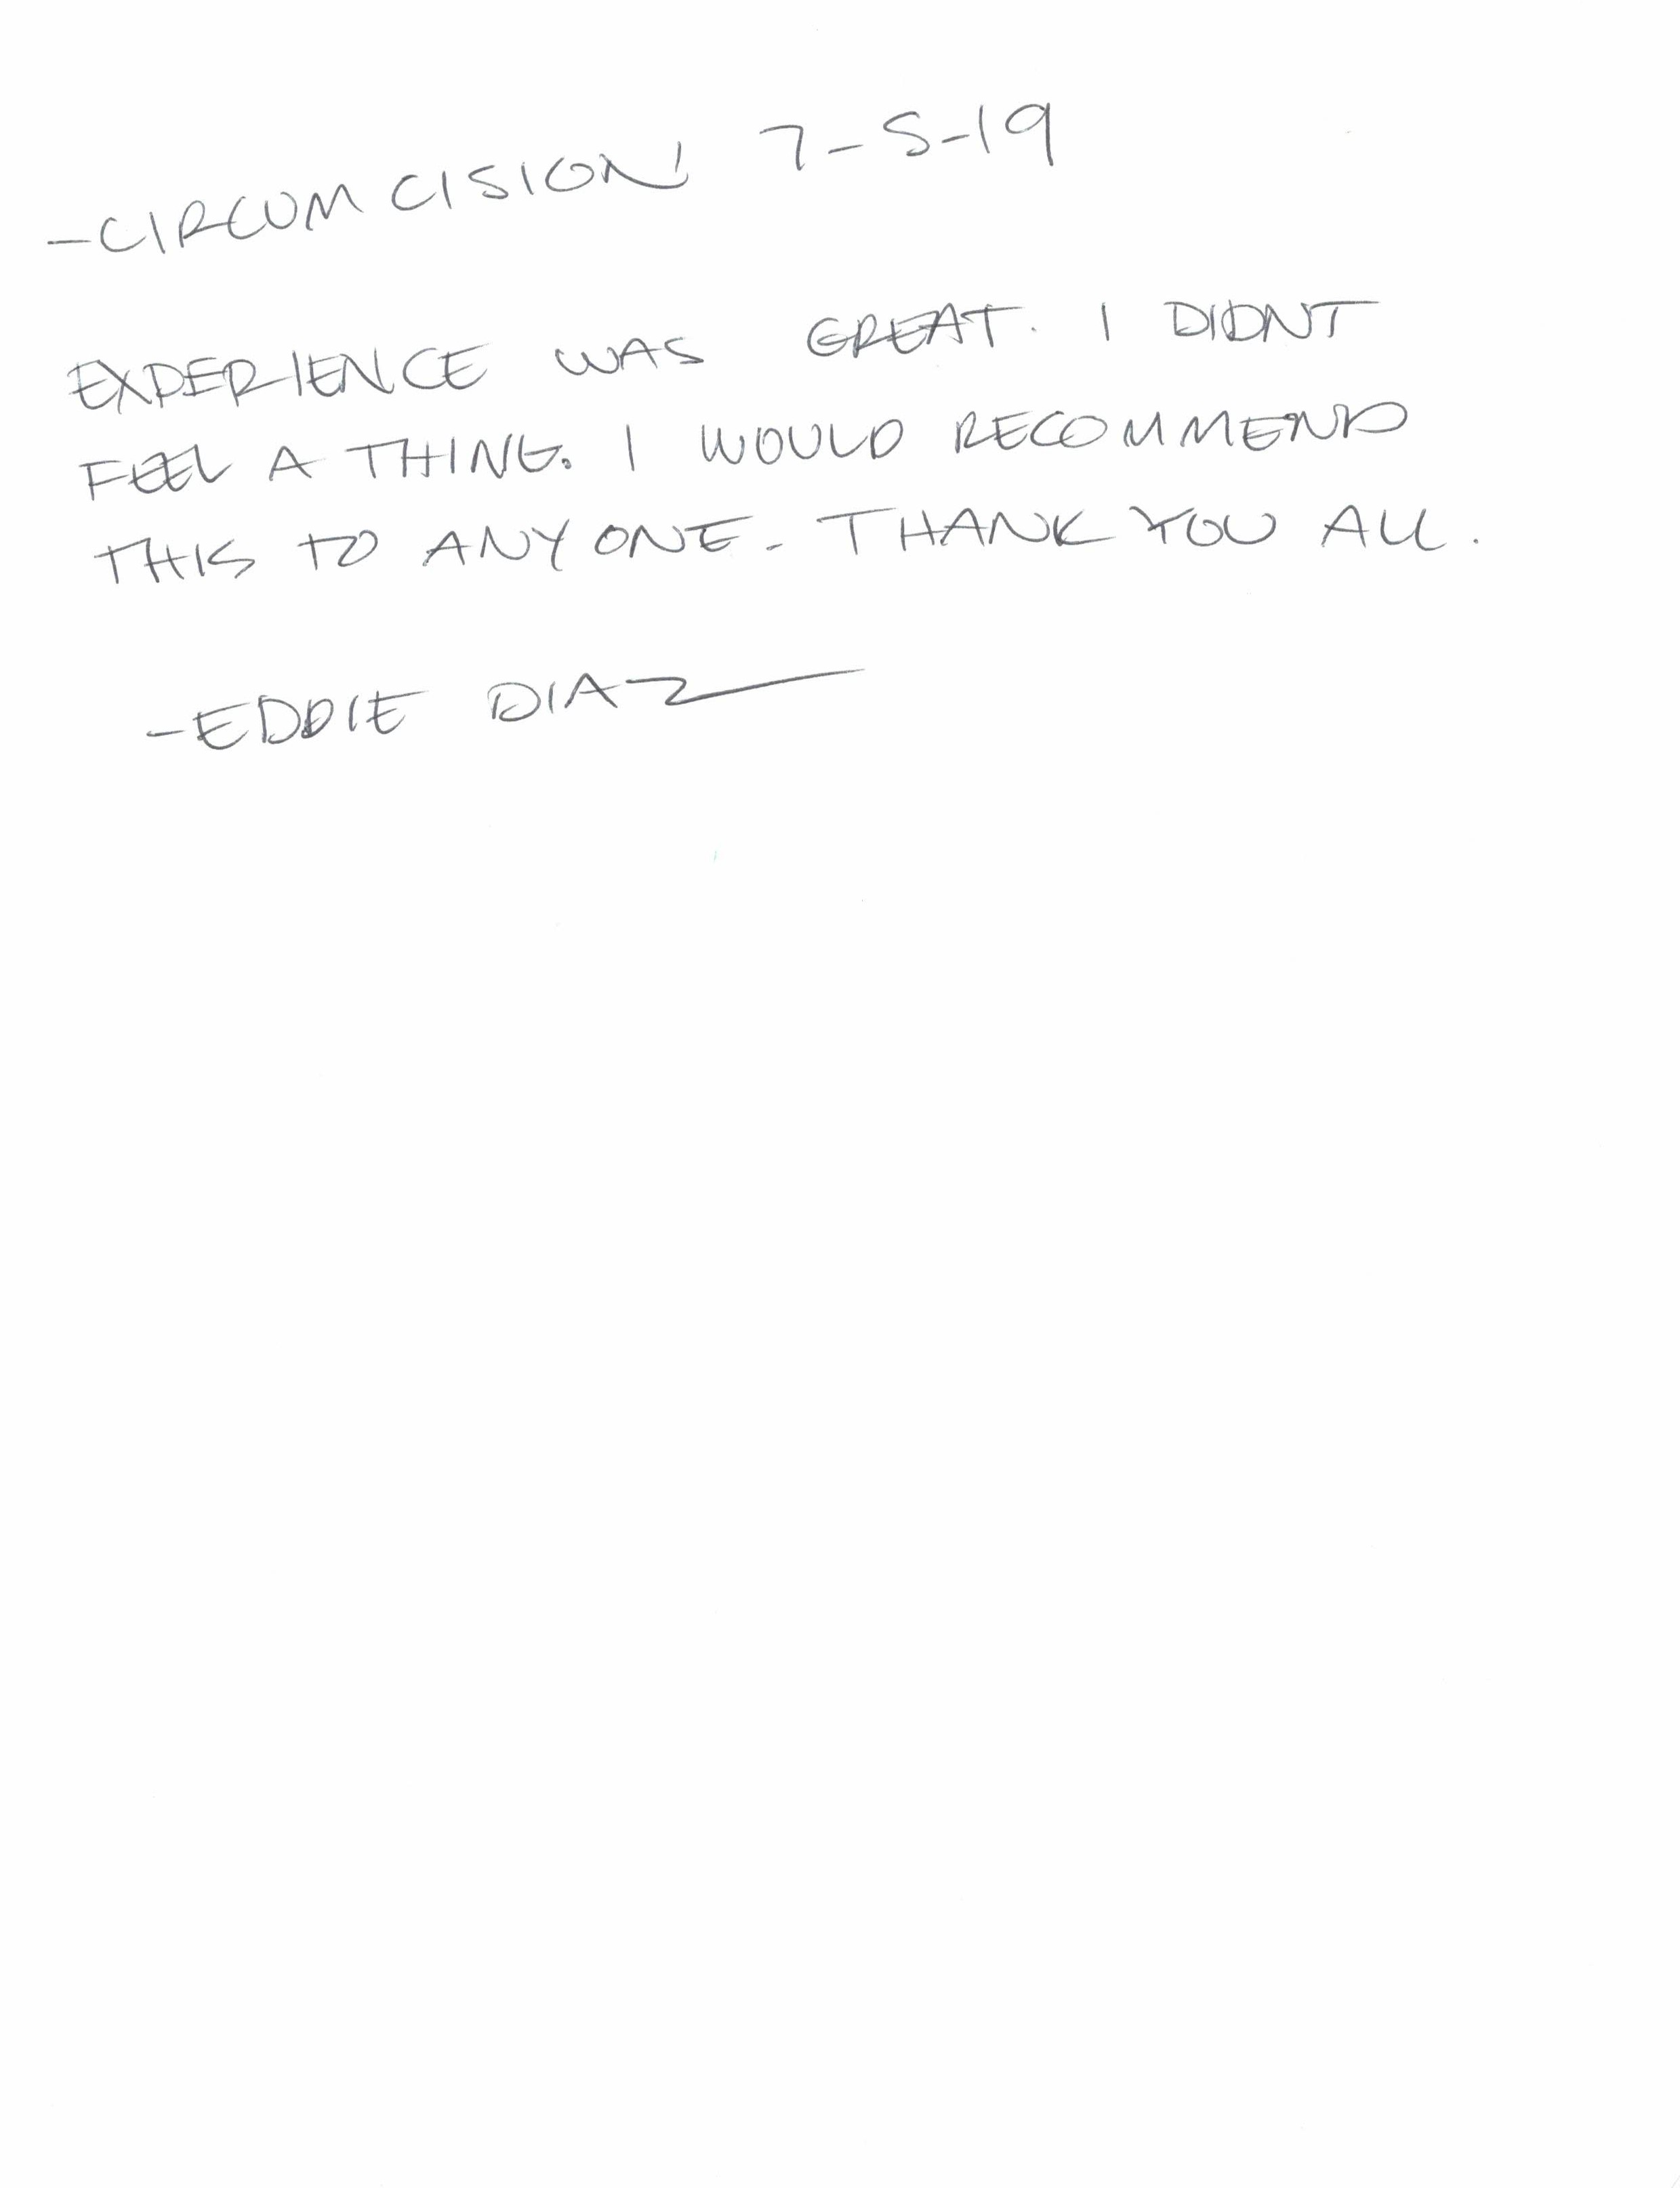 -CIRCUMCISION 7-5-19
EXPERIENCE WAS GREAT. I DIDNT
FEEL A THING. I WOULD RECOMMEND
THIS TO ANYONE. THANK YOU ALL.
-EDDIE DIAZ